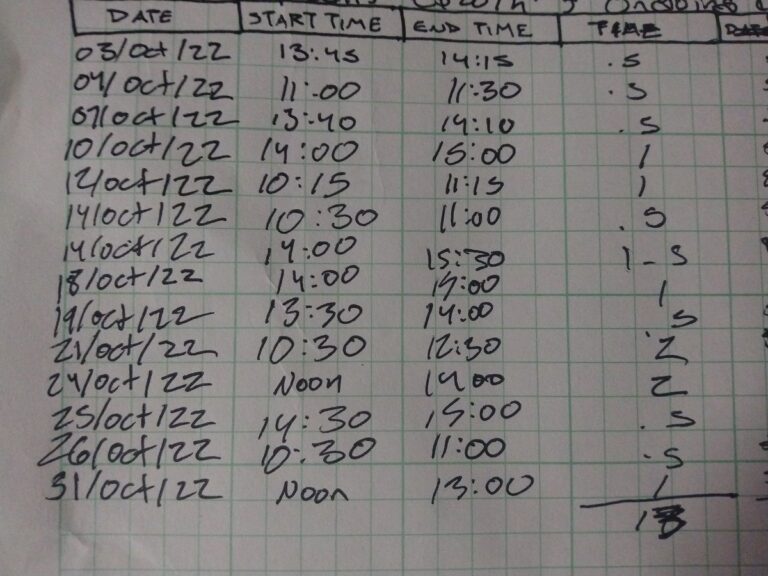 DATE START TIME END TIME TIME
03/Oct/22 13:45 14:15 .5
04/Oct/22 11:00 11:30 .5
07/Oct/22 13:40 14:10 .5
10/Oct/22 14:00 15:00 1
12/Oct/22 10:15 11:15 1
14/Oct/22 10:30 11:00 .5
14/Oct/22 14:00 15:30 1-5
18/Oct/22 14:00 15:00 1
19/Oct/22 13:30 14:00 .5
21/Oct/22 10:30 12:30 2
24/Oct/22 Noon 14:00 2
25/Oct/22 14:30 15:00 .5
26/Oct/22 10:30 11:00 .5
31/Oct/22 Noon 13:00 1
13